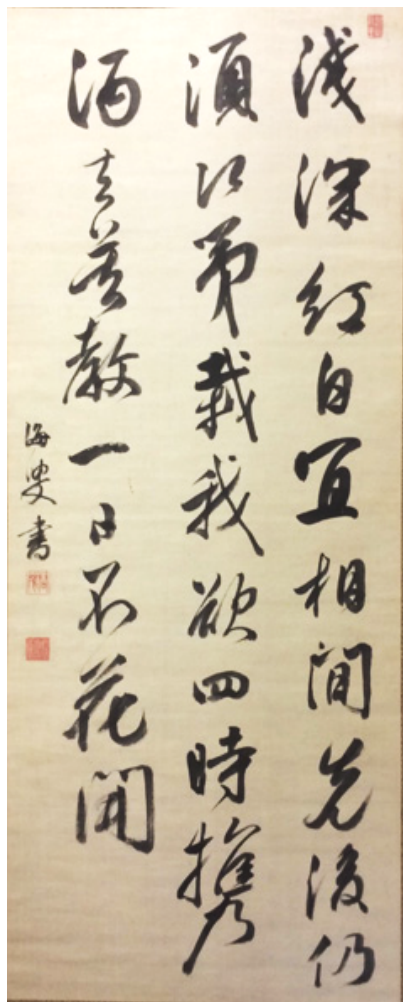 淺深紅白宜相間先後仍
須次第載我欲四時携
酒去莫教一日不花開
海叟書